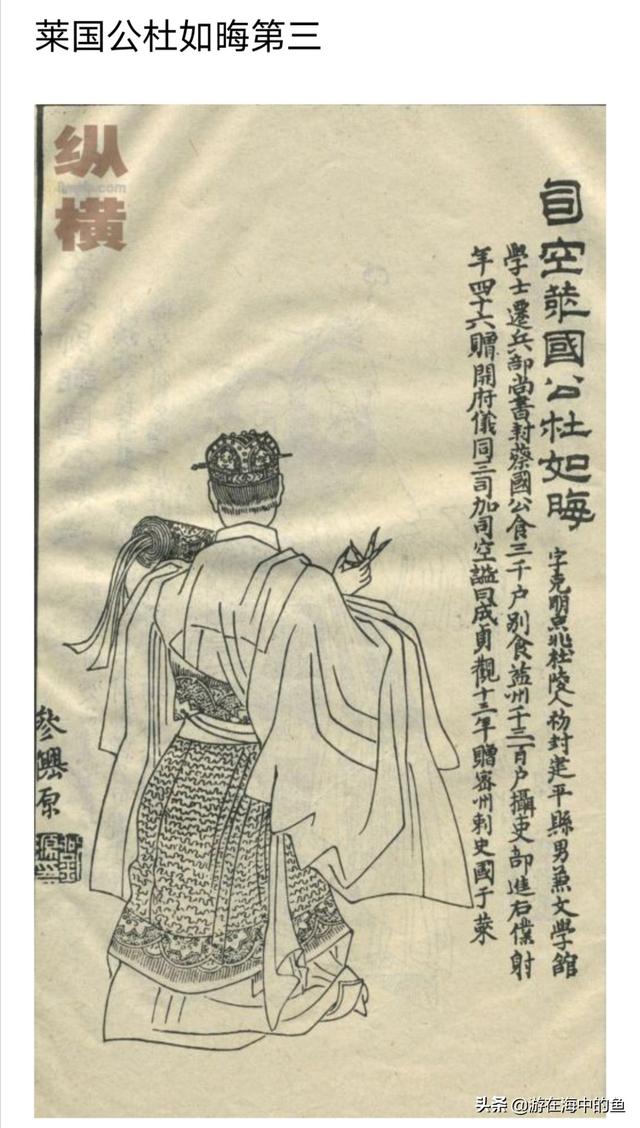 莱国公杜如晦第三
纵横
司空萊國公杜如晦
字克明京兆杜陵人初封建平縣男兼文學館
學士遷兵部尚書封蔡國公食三千户別食益州千三百户攝吏部進右僕射
年四十六贈開府儀同三司加司空謚曰成貞觀十三年贈密州刺史國于萊
头条 @游在海中的鱼